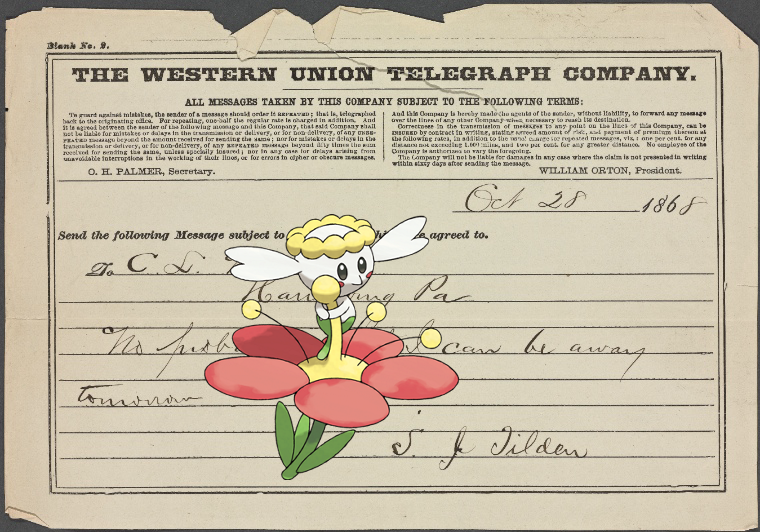 Blank No. 2.
THE WESTERN UNION TELEGRAPH COMPANY.
ALL MESSAGES TAKEN BY THIS COMPANY SUBJECT TO THE FOLLOWING TERMS:
To guard against mistakes, the sender of a message should order it REPEATED; that is, telegraphed
back to the originating office. For repeating, one-half the regular rate is charged in addition. And
it is agreed between the sender of the following message and this Company, that said Company shall
not be liable for mistakes or delays in the transmission or delivery, or for non-delivery, of any UNRE-
PEATED message beyond the amount received for sending the same; nor for mistakes or delays in the
transmission or delivery, or for non-delivery, of any REPEATED message beyond fifty times the sum
received for sending the same, unless specially insured; nor in any case for delays arising from
unavoidable interruptions in the working of their lines, or for errors in cipher or obscure messages.
And this Company is hereby made the agent of the sender, without liability, to forward any message
over the lines of any other Company when necessary to reach its destination.
Correctness in the transmission of messages to any point on the lines of this Company, can be
INSURED by contract in writing, stating agreed amount of risk, and payment of premium thereon at
the following rates, in addition to the usual charge for repeated messages, viz: one per cent. for any
distance not exceeding 1,000 miles, and two per cent. for any greater distance. No employee of the
Company is authorized to vary the foregoing.
The Company will not be liable for damages in any case where the claim is not presented in writing
within sixty days after sending the message.
O. H. PALMER, Secretary.
WILLIAM ORTON, President.
Oct 28 1868
Send the following Message subject to agreed to.
To C. L.
Pa
No can be away
tomorrow
S. J. Tilden